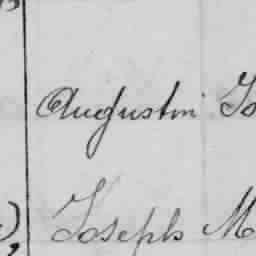 Augustin Jo
Joseph M